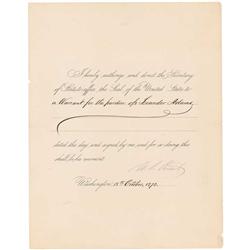 I hereby authorize and direct the Secretary
of State to affix the Seal of the United States to
a Warrant for the pardon of Leander
dated this day, and signed by me, and for so doing this
shall be his warrant.
U. S. Grant
Washington, October, 187